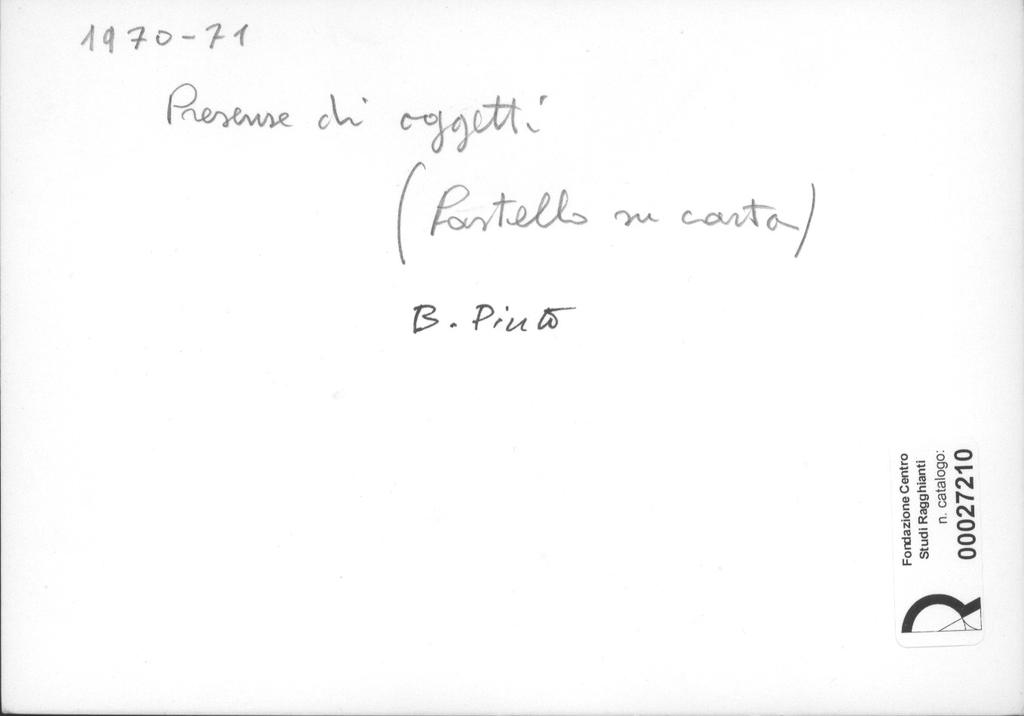 1970-71
Presenze di oggetti
(Pastello su carta)
B. Pinto
Fondazione Centro
Studi Ragghianti
n. catalogo:
00027210